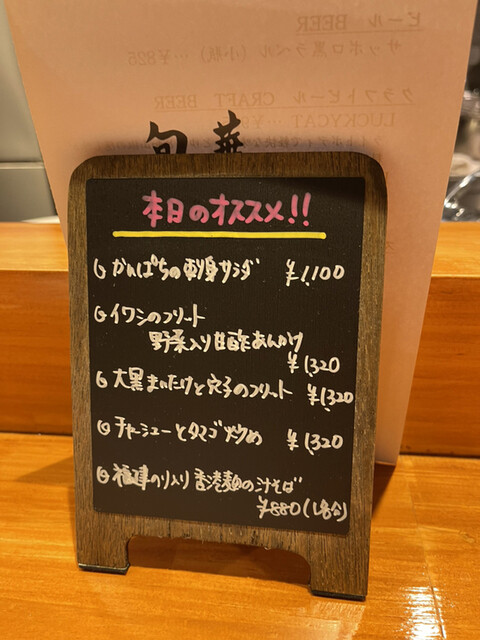 ビール BEER
サッポロ黒ラベル(小瓶)…¥825
クラフトビール CRAFT BEER
LUCKYCAT …¥
旬 華
本日のオススメ!!
かんぱちの刺身サラダ ¥1,100
イワシのフリート
野菜入り甘酢あんかけ
¥1,320
大黒まいたけと穴子のフリート ¥1,320
チャーシューとタマゴ炒め ¥1,320
福建のり入り香港麺の汁そば
¥880(1名分)